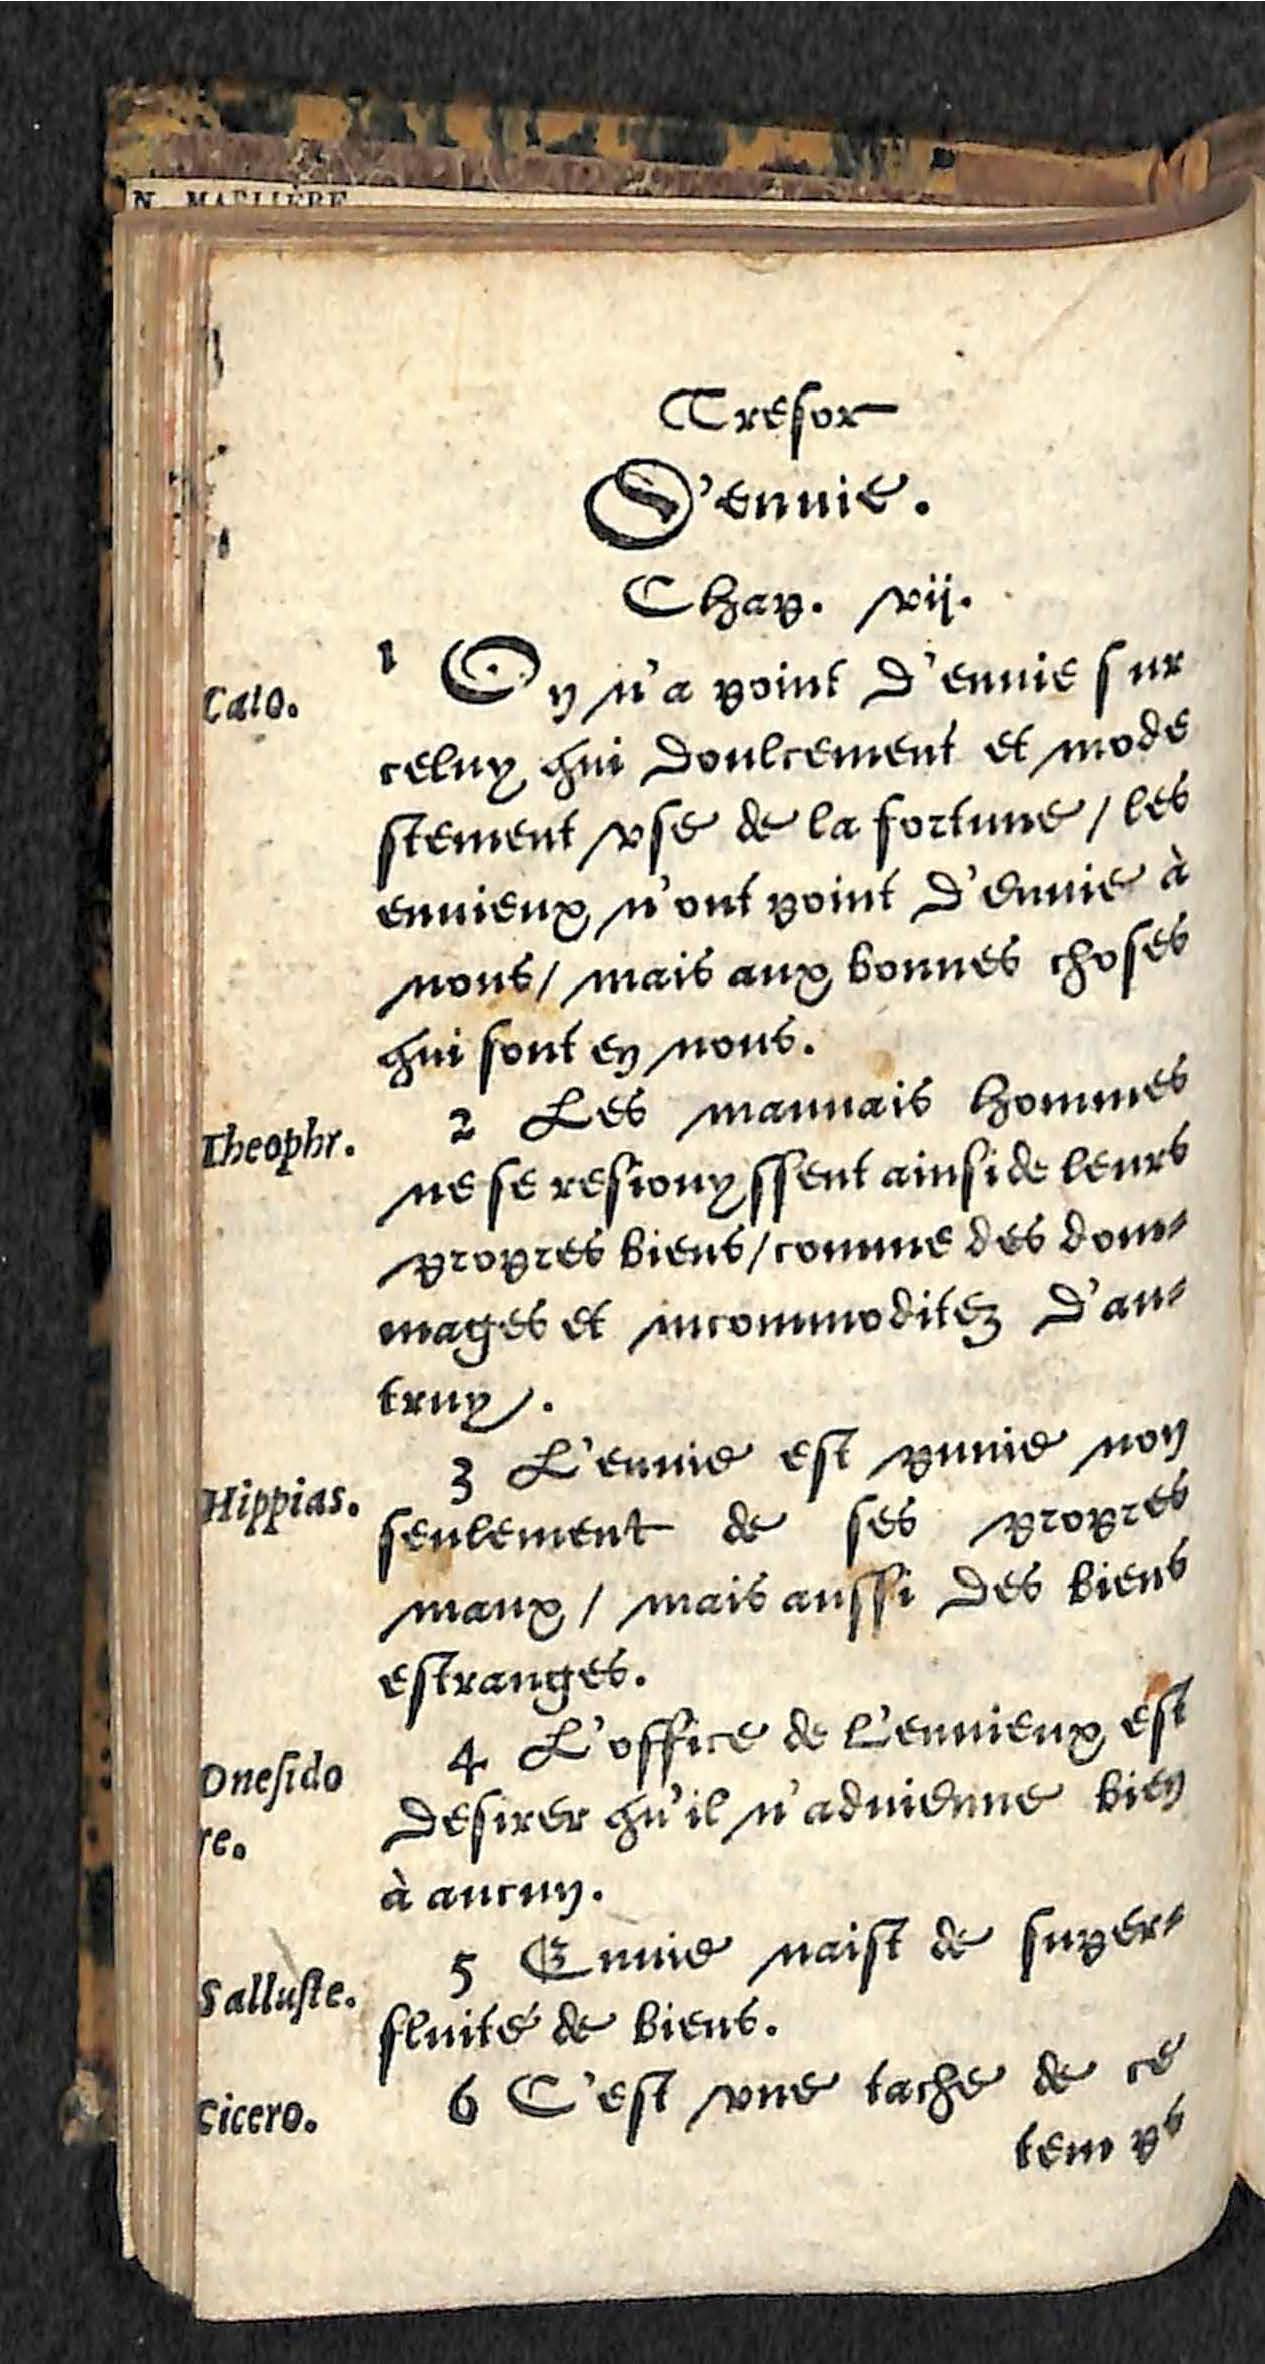 N. MAELIERE
Tresor
D'enuie.
Chap. vij.
Cato.
1 On n'a point d'enuie sur
celuy qui doulcement et mode
stement vse de la fortune / les
enuieux n'ont point d'enuie à
nous / mais aux bonnes choses
qui sont en nous.
Theophr.
2 Les mauuais hommes
ne se resiouyssent ainsi de leurs
propres biens / comme des dom-
mages et incommoditez d'au-
truy.
Hippias.
3 L'enuie est punie non
seulement de ses propres
maux / mais aussi des biens
estranges.
Onesido
re.
4 L'office de l'enuieux est
desirer qu'il n'aduienne bien
à aucun.
Salluste.
5 Enuie naist de super-
fluité de biens.
Cicero.
6 C'est vne tache de ce
temps